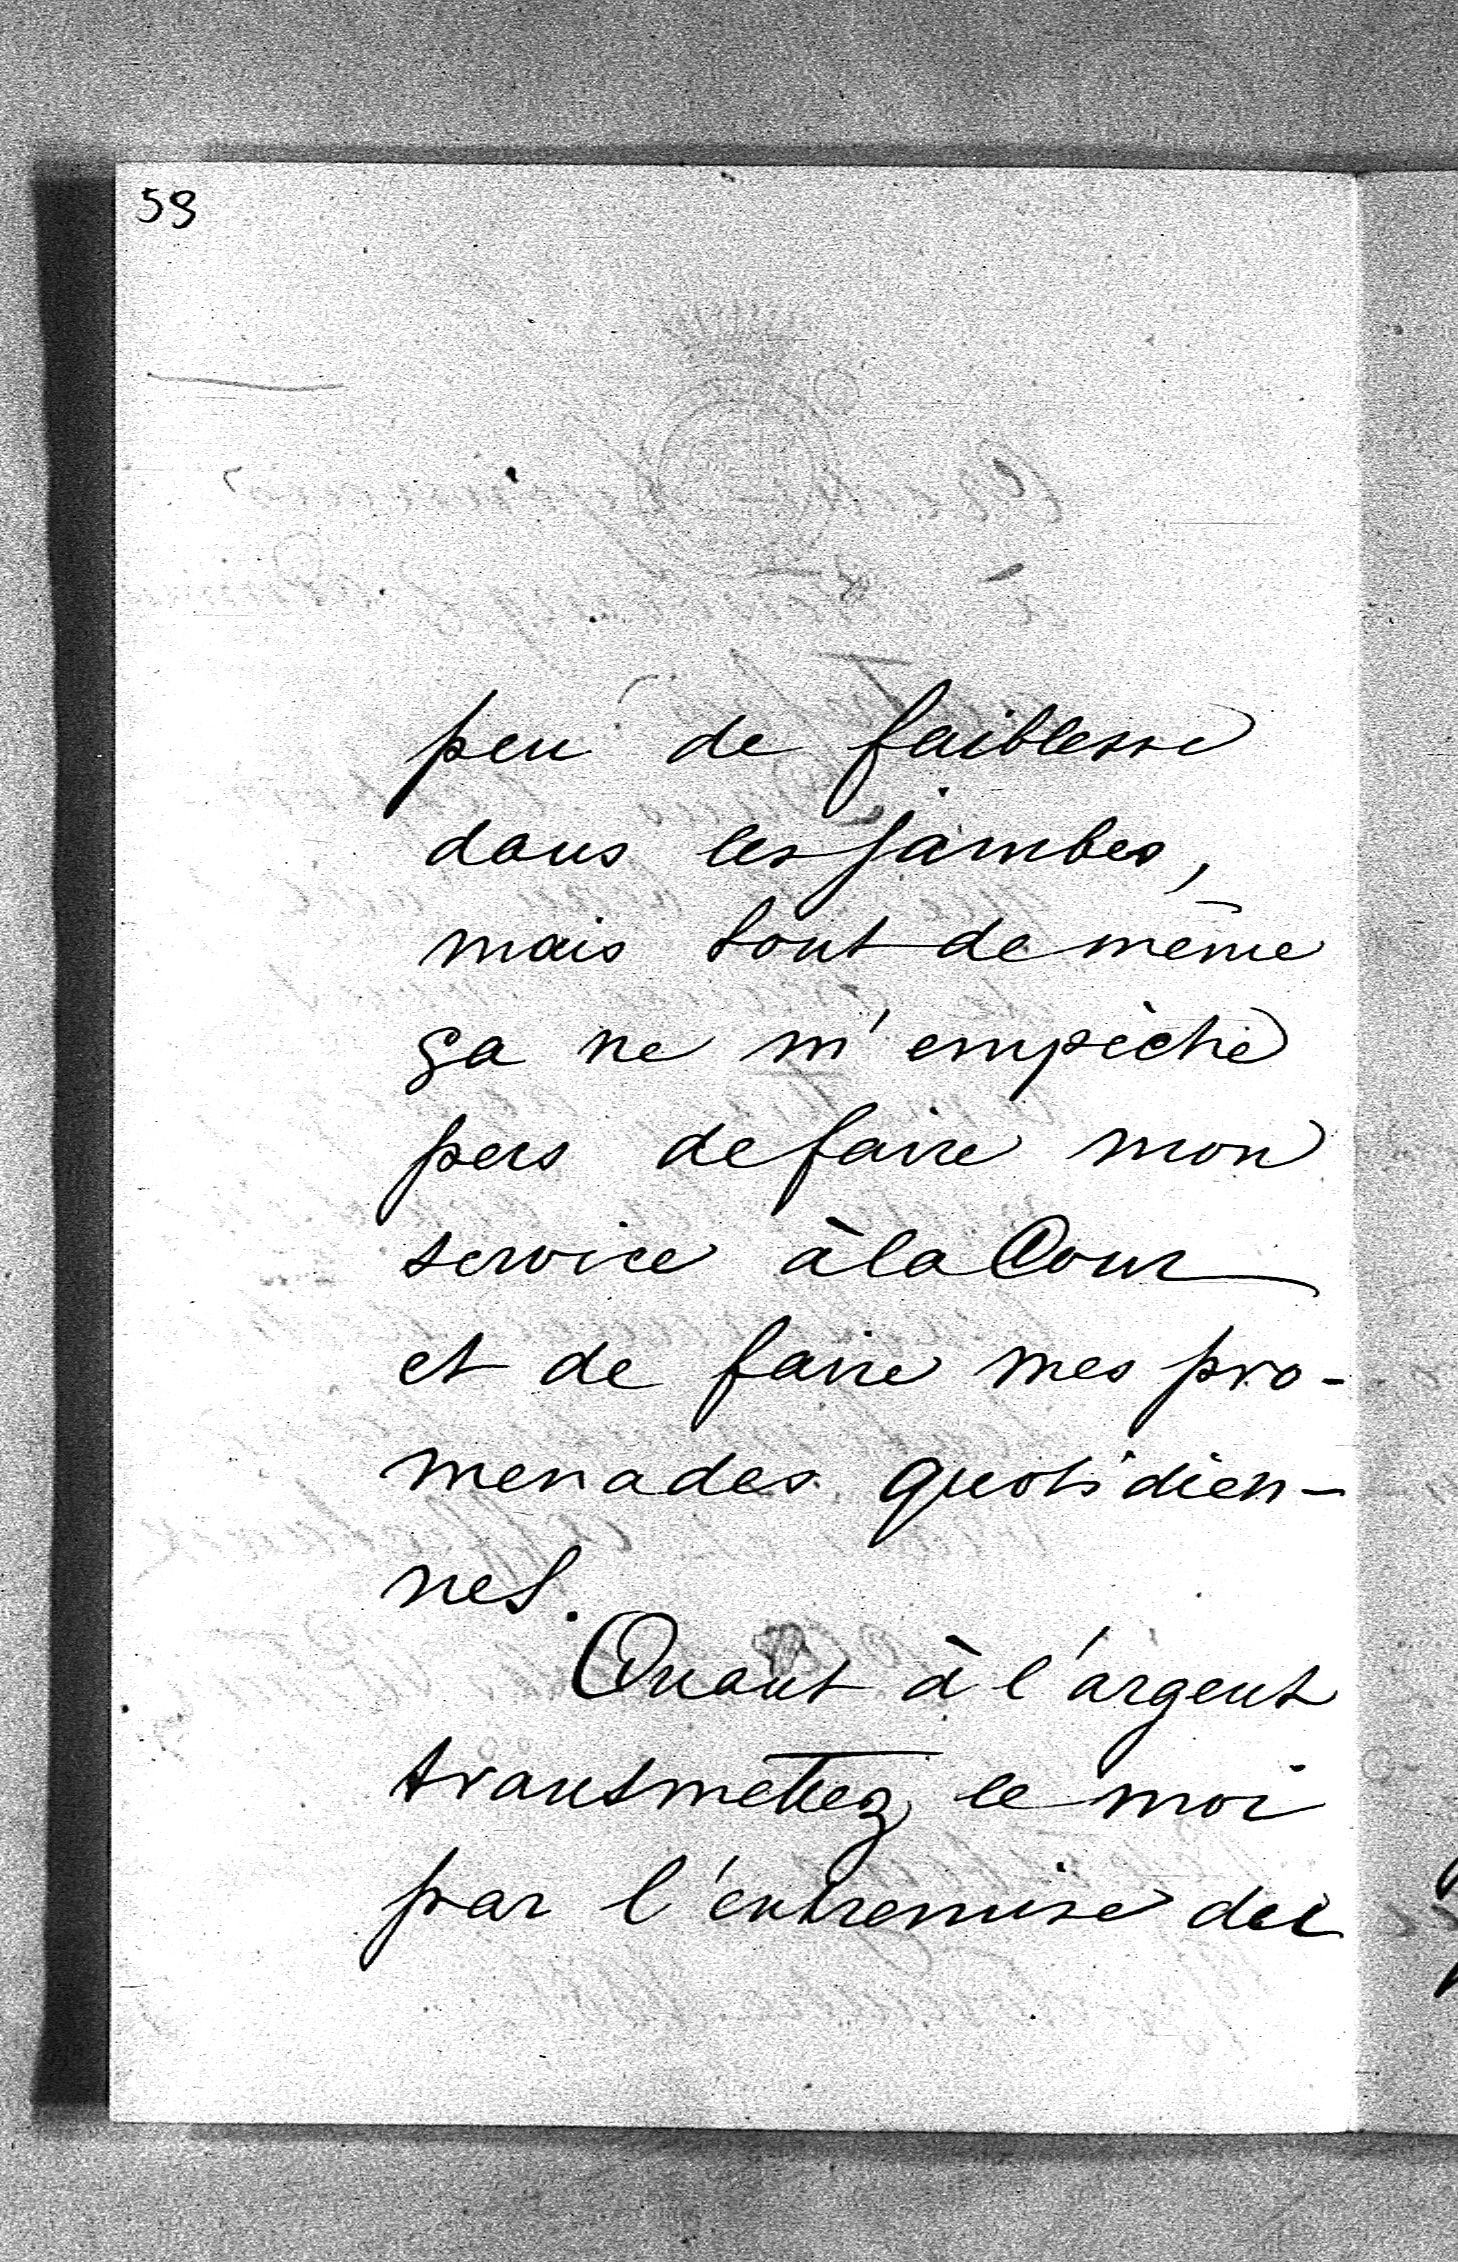 59
peu de faiblesse
dans les jambes,
mais tout de même
ça ne m'empèche
pas de faire mon
service à la Cour
et de faire mes pro-
menades quotidien-
nes.
Quant à l'argent
transmettez le moi
par l'entremise du